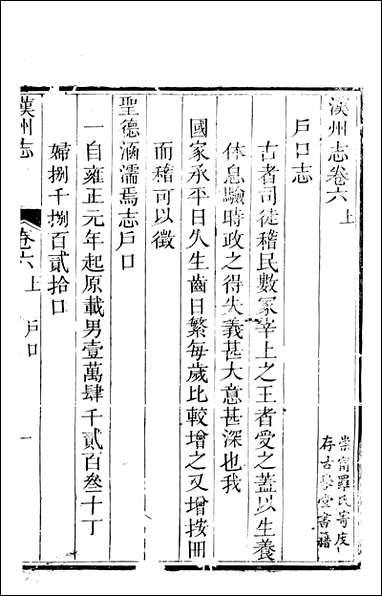 漢州志卷六上
戶口志
古者司徒稽民數冢宰上之王者愛之蓋以生養
休息驗時政之得失義甚大意甚深也我
國家承平日久生齒日繁每歲比較增之又增按冊
而稽可以徵
聖德涵濡焉志戶口
一自雍正元年起原載男壹萬肆千貳百叁十丁
婦捌千捌百貳拾口
漢州志
卷六上
戶口
一
崇甯羅氏寄庋
存古學堂書籍